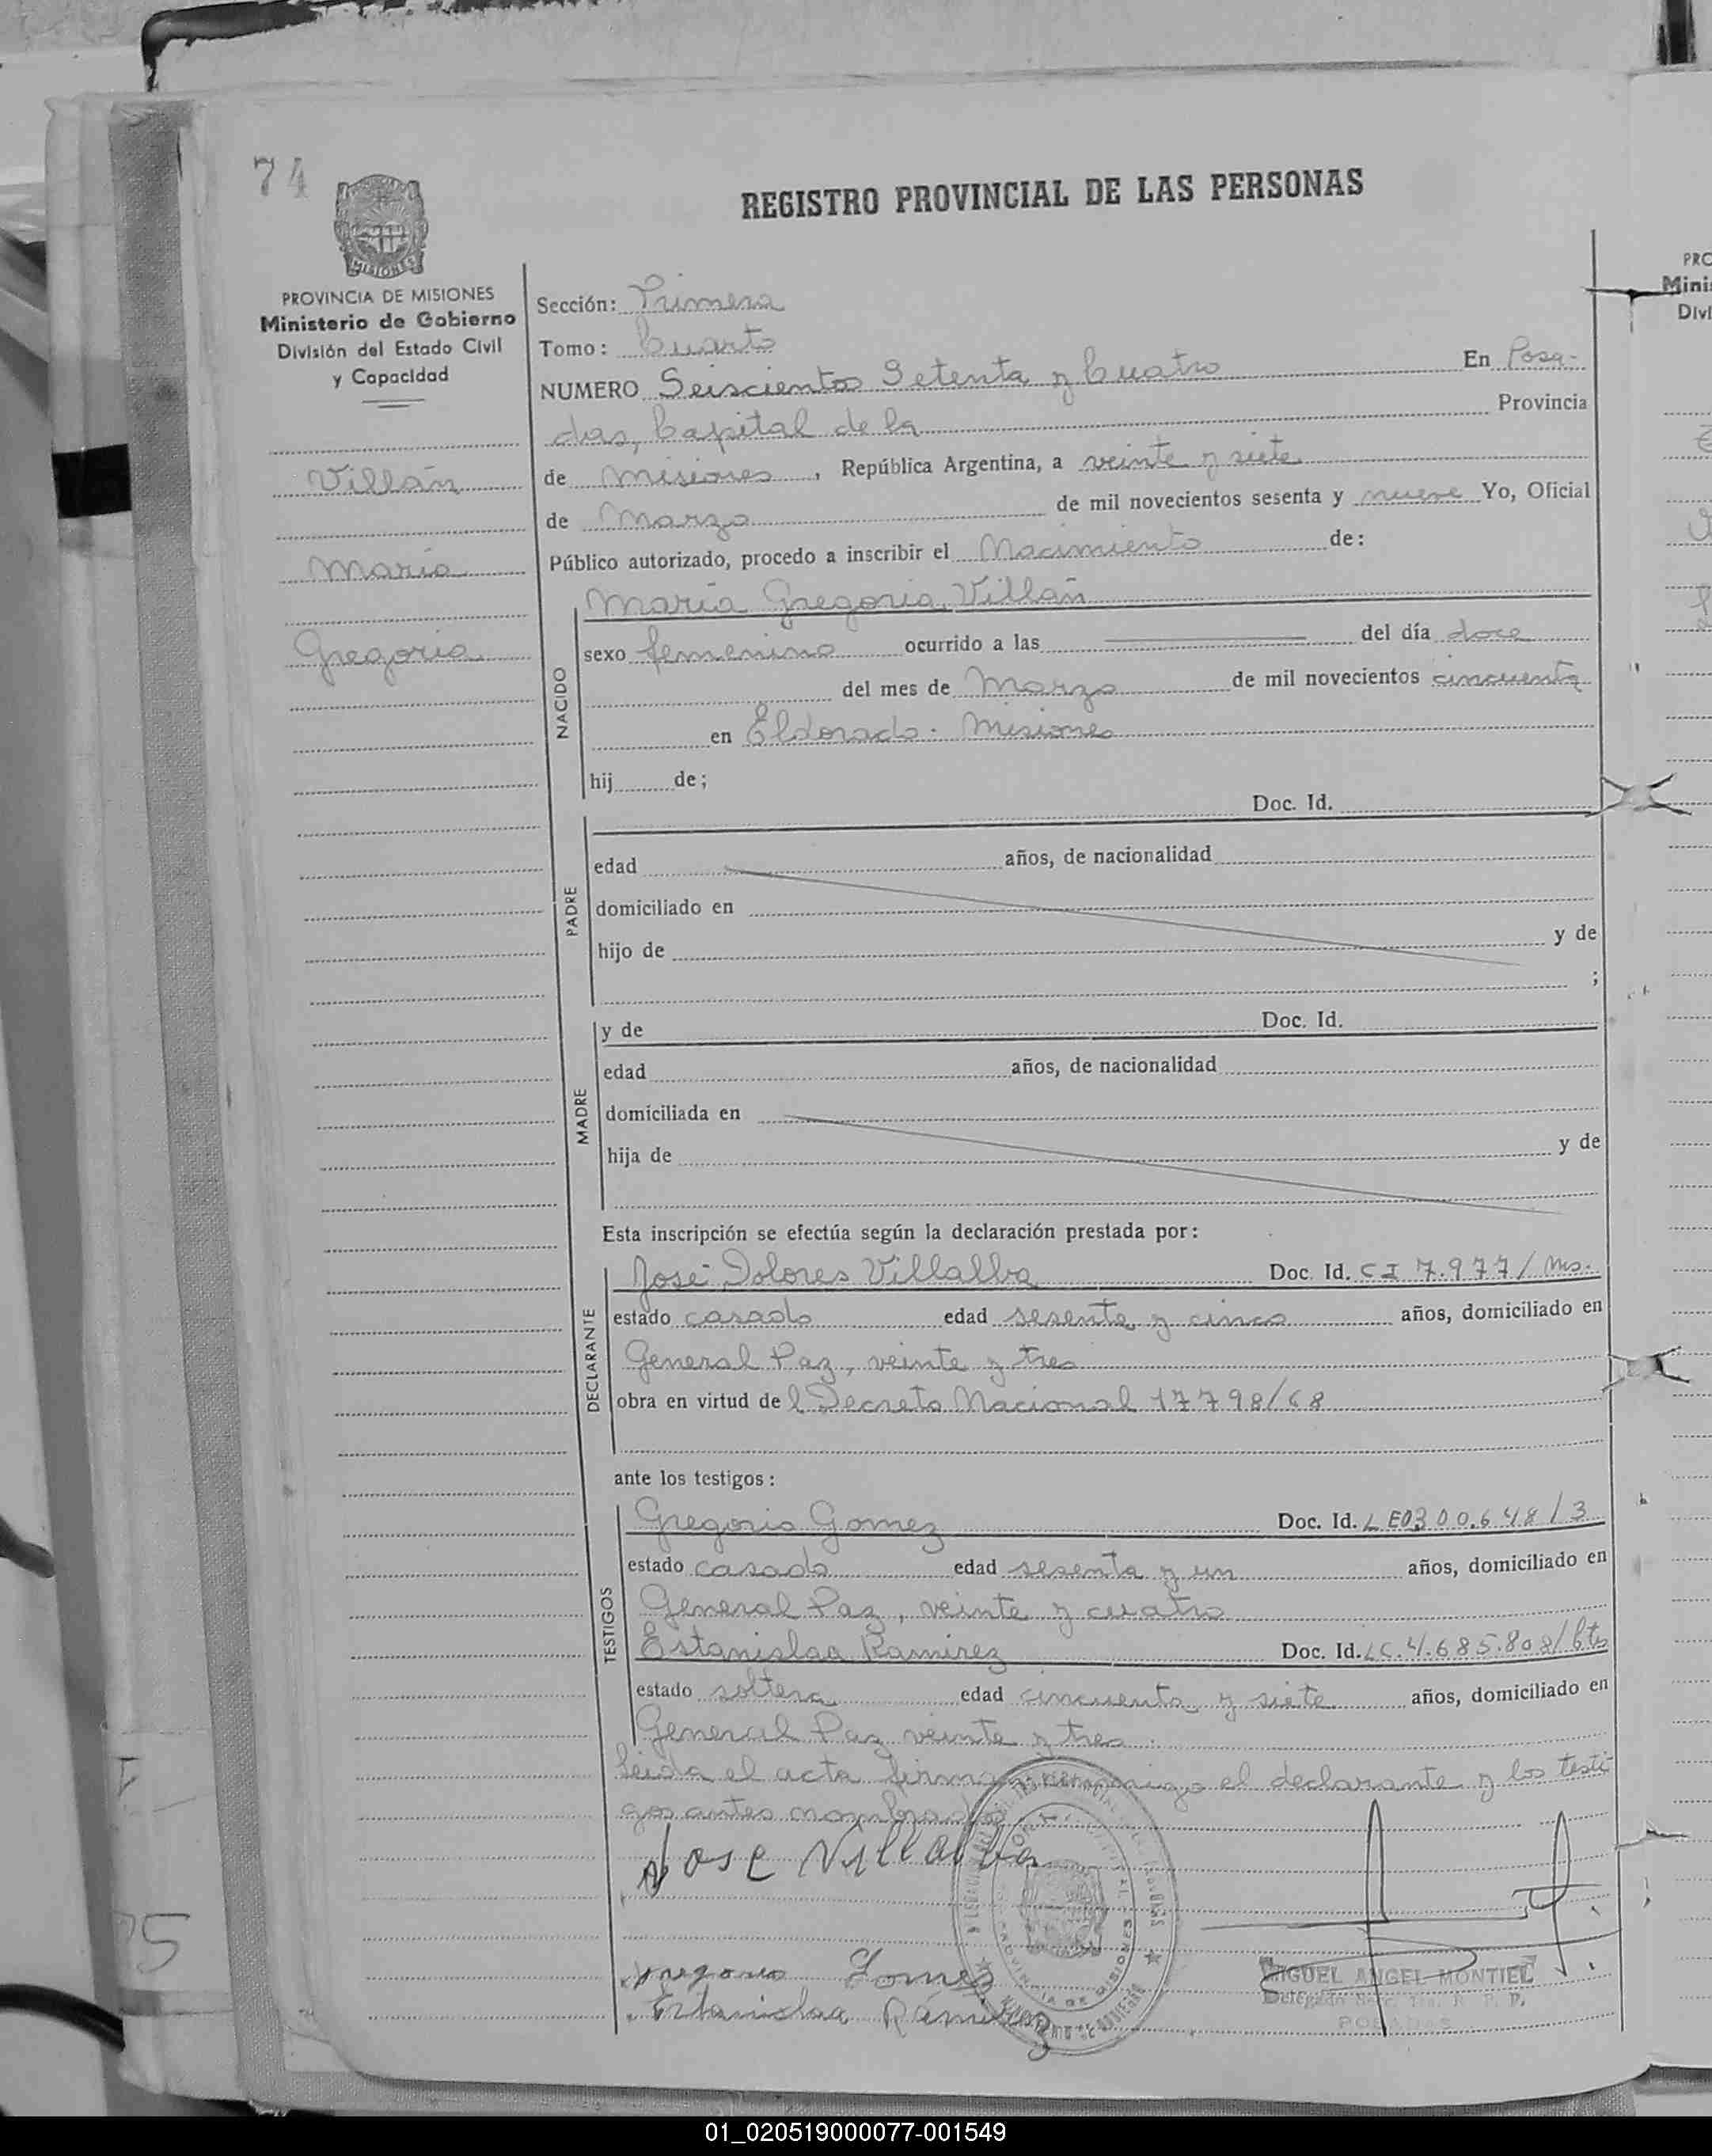 74
MISIONES
PROVINCIA DE MISIONES
Ministerio de Gobierno
División del Estado Civil
y Capacidad
Villán
María
Gregoria
REGISTRO PROVINCIAL DE LAS PERSONAS
Sección: Primera
Tomo: Cuarto
NUMERO Seiscientos Setenta y Cuatro En Posa-
das, Capital de la Provincia
de Misiones, República Argentina, a veinte y siete
de Marzo de mil novecientos sesenta y nueve Yo, Oficial
Público autorizado, procedo a inscribir el Nacimiento de:
María Gregoria Villán
NACIDO
sexo femenino ocurrido a las del día doce
del mes de Marzo de mil novecientos cincuenta
en Eldorado - Misiones
hij de;
Doc. Id.
PADRE
edad años, de nacionalidad
domiciliado en
hijo de y de
;
MADRE
y de Doc. Id.
edad años, de nacionalidad
domiciliada en
hija de y de
Esta inscripción se efectúa según la declaración prestada por:
DECLARANTE
José Dolores Villalba Doc. Id. CI 7.977/Ms.
estado casado edad sesenta y cinco años, domiciliado en
General Paz, veinte y tres
obra en virtud de l Decreto Nacional 17798/68
ante los testigos:
TESTIGOS
Gregorio Gomez Doc. Id. LE0300.648/3
estado casado edad sesenta y un años, domiciliado en
General Paz, veinte y cuatro
Estanislaa Ramirez Doc. Id. LC.4.685.808/Cts
estado soltera edad cincuenta y siete años, domiciliado en
General Paz veinte y tres.
Leida el acta firman conmigo el declarante y los testi
gos antes nombrados
Jose Villalba
Gregorio Gomes
Estanislaa Ramirez
PROVINCIA DE MISIONES
MINISTERIO DE GOBIERNO
MIGUEL ANGEL MONTIEL
Delegado Secc. 1ra. R. P. P.
POSADAS
PRO
Minis
Divi
75
01_020519000077-001549